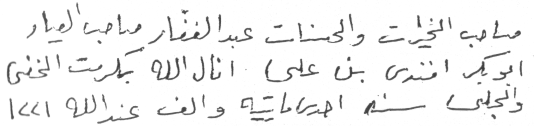 صاحب الخيرات والحسنات عبد الغفار صاحب العيار
ابو بكر افندى بن على انال الله بكرمت الخفى
والجلى سنه احدى ماتيه والف عند الله ١٢٢١